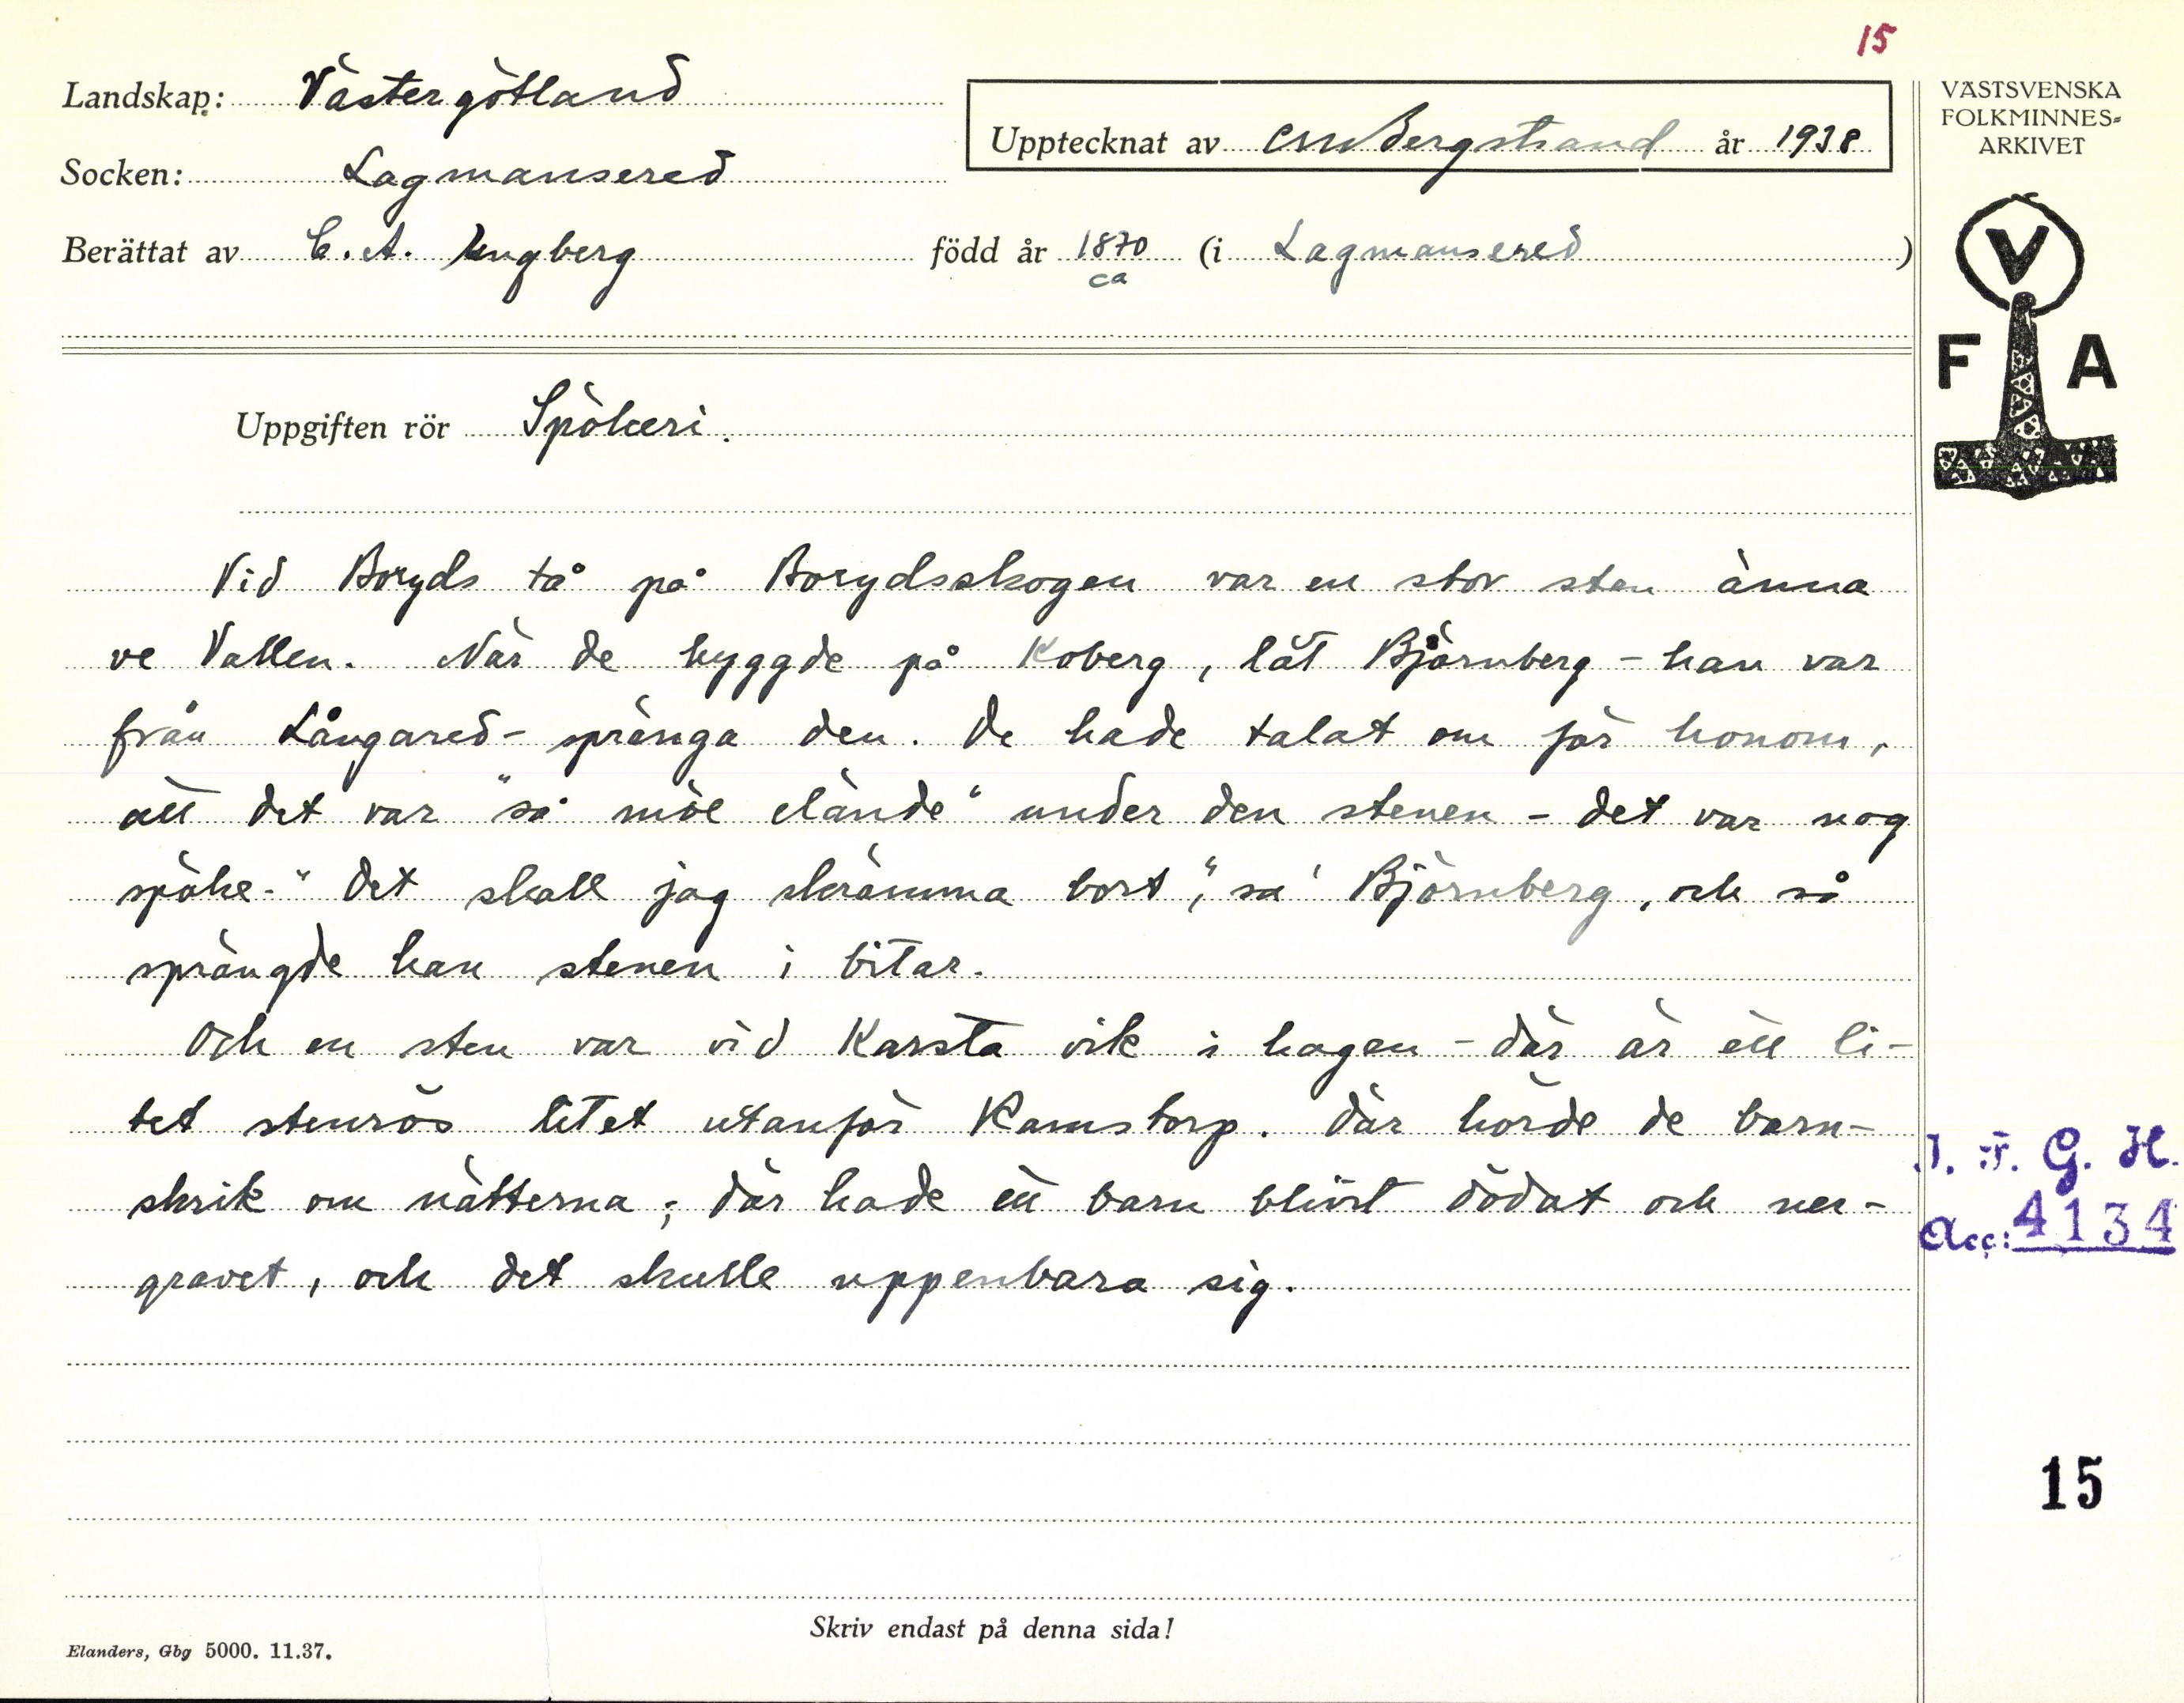 15
Landskap: Västergötland
Upptecknat av CM Bergstrand år 1938
VÄSTSVENSKA
FOLKMINNES-
ARKIVET
Socken: Lagmansered
Berättat av C. A. Ungberg född år 1870 (i Lagmansered )
ca
V
F A
Uppgiften rör Spökeri.
Vid Boryds tå på Borydsskogen var en stor sten änna
ve Vallen. När de byggde på Koberg, lät Björnberg - han var
från Långared - spränga den. De hade talat om för honom,
att det var "så möe elände" under den stenen - det var nog
spöke. "Det skall jag skrämma bort", sa' Björnberg, och så
sprängde han stenen i bitar.
Och en sten var vid Karsta vik i hagen - där är ett li-
tet stenrös litet utanför Ramstorp. Där hörde de barn-
skrik om nätterna; där hade ett barn blivit dödat och ner-
gravet, och det skulle uppenbara sig.
I. F. G. H.
Acc: 4134
15
Skriv endast på denna sida!
Elanders, Gbg 5000. 11.37.